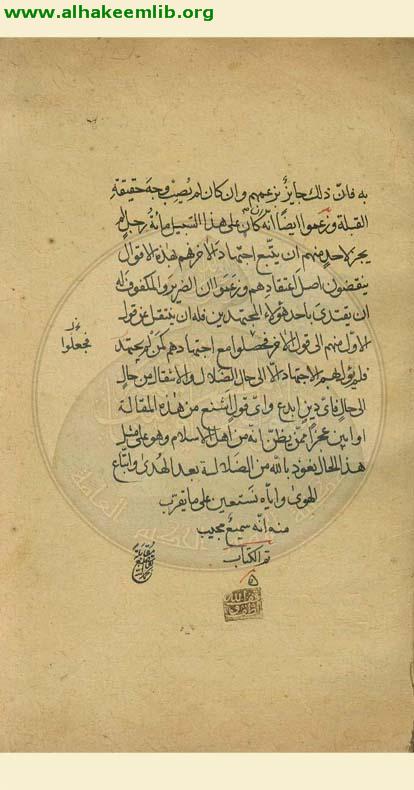 www.alhakeemlib.org
به فان ذلك جايز بزعمهم وان كان لم يصب وجه حقيقة
القبلة وزعموا ايضاً انه لو كان على هذا السبيل مائة رجل لم
يجز لاحد منهم ان يتبع اجتهاد الاخر فهم بهذه الاقوال
ينقضون اصل اعتقادهم وزعموا ان الضرير والمكفوف له
ان يقتدى باحد هؤلاء المجتهدين فله ان ينتقل عن قول
الاول منهم الى قول الاخر فحصلوا مع اجتهادهم كمن لم يجتهد
فجعلوا
فلم يؤل بهم الاجتهاد الا الى حال الضلال والانتقال من حال
الى حال فاى دين ابدع واى قول اشنع من هذه المقالة
او ابين عجزاً ممن يظن انه من اهل الاسلام وهو على مثل
هذا الحال نعوذ بالله من الضلالة بعد الهدى واتباع
الهوى واياه نستعين على ما يقرب
منه انه سميع مجيب
تم الكتاب